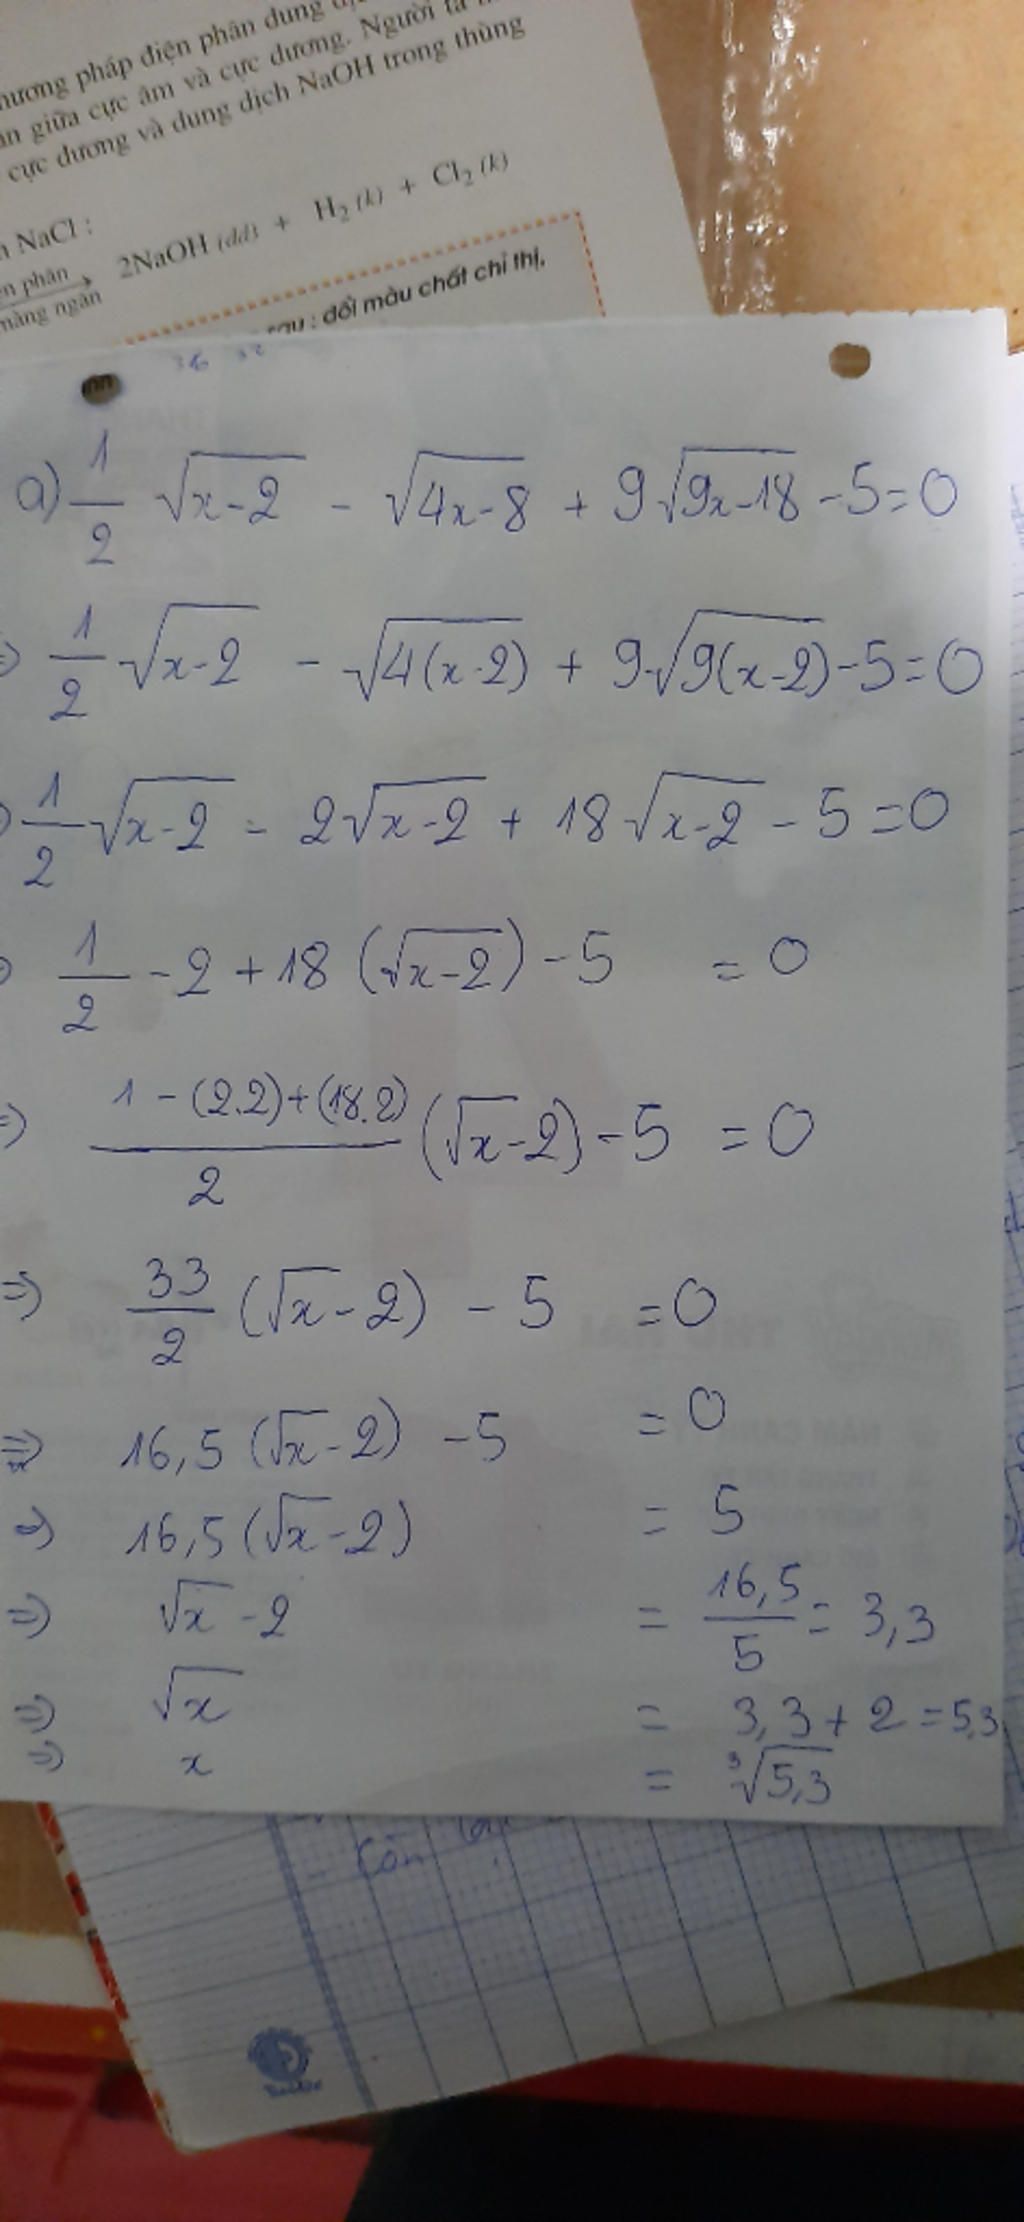 pháp điện phân dung
giữa cực âm và cực dương. Người ta
cực dương và dung dịch NaOH trong thùng
NaCl :
phân
màng ngăn
2NaOH (dd) + H₂ (k) + Cl₂ (k)
: đổi màu chất chỉ thị,
a) 1/2 √(x-2) - √(4x-8) + 9√(9x-18) - 5 = 0
=) 1/2 √(x-2) - √(4(x-2)) + 9√(9(x-2)) - 5 = 0
) 1/2 √(x-2) - 2√(x-2) + 18√(x-2) - 5 = 0
) 1/2 - 2 + 18 (√(x-2)) - 5 = 0
=) (1 - (2.2) + (18.2))/2 (√x - 2) - 5 = 0
=) 33/2 (√x - 2) - 5 = 0
=) 16,5 (√x - 2) - 5 = 0
=) 16,5 (√x - 2) = 5
=) √x - 2 = 16,5/5 = 3,3
=) √x = 3,3 + 2 = 5,3
=) x = ³√5,3